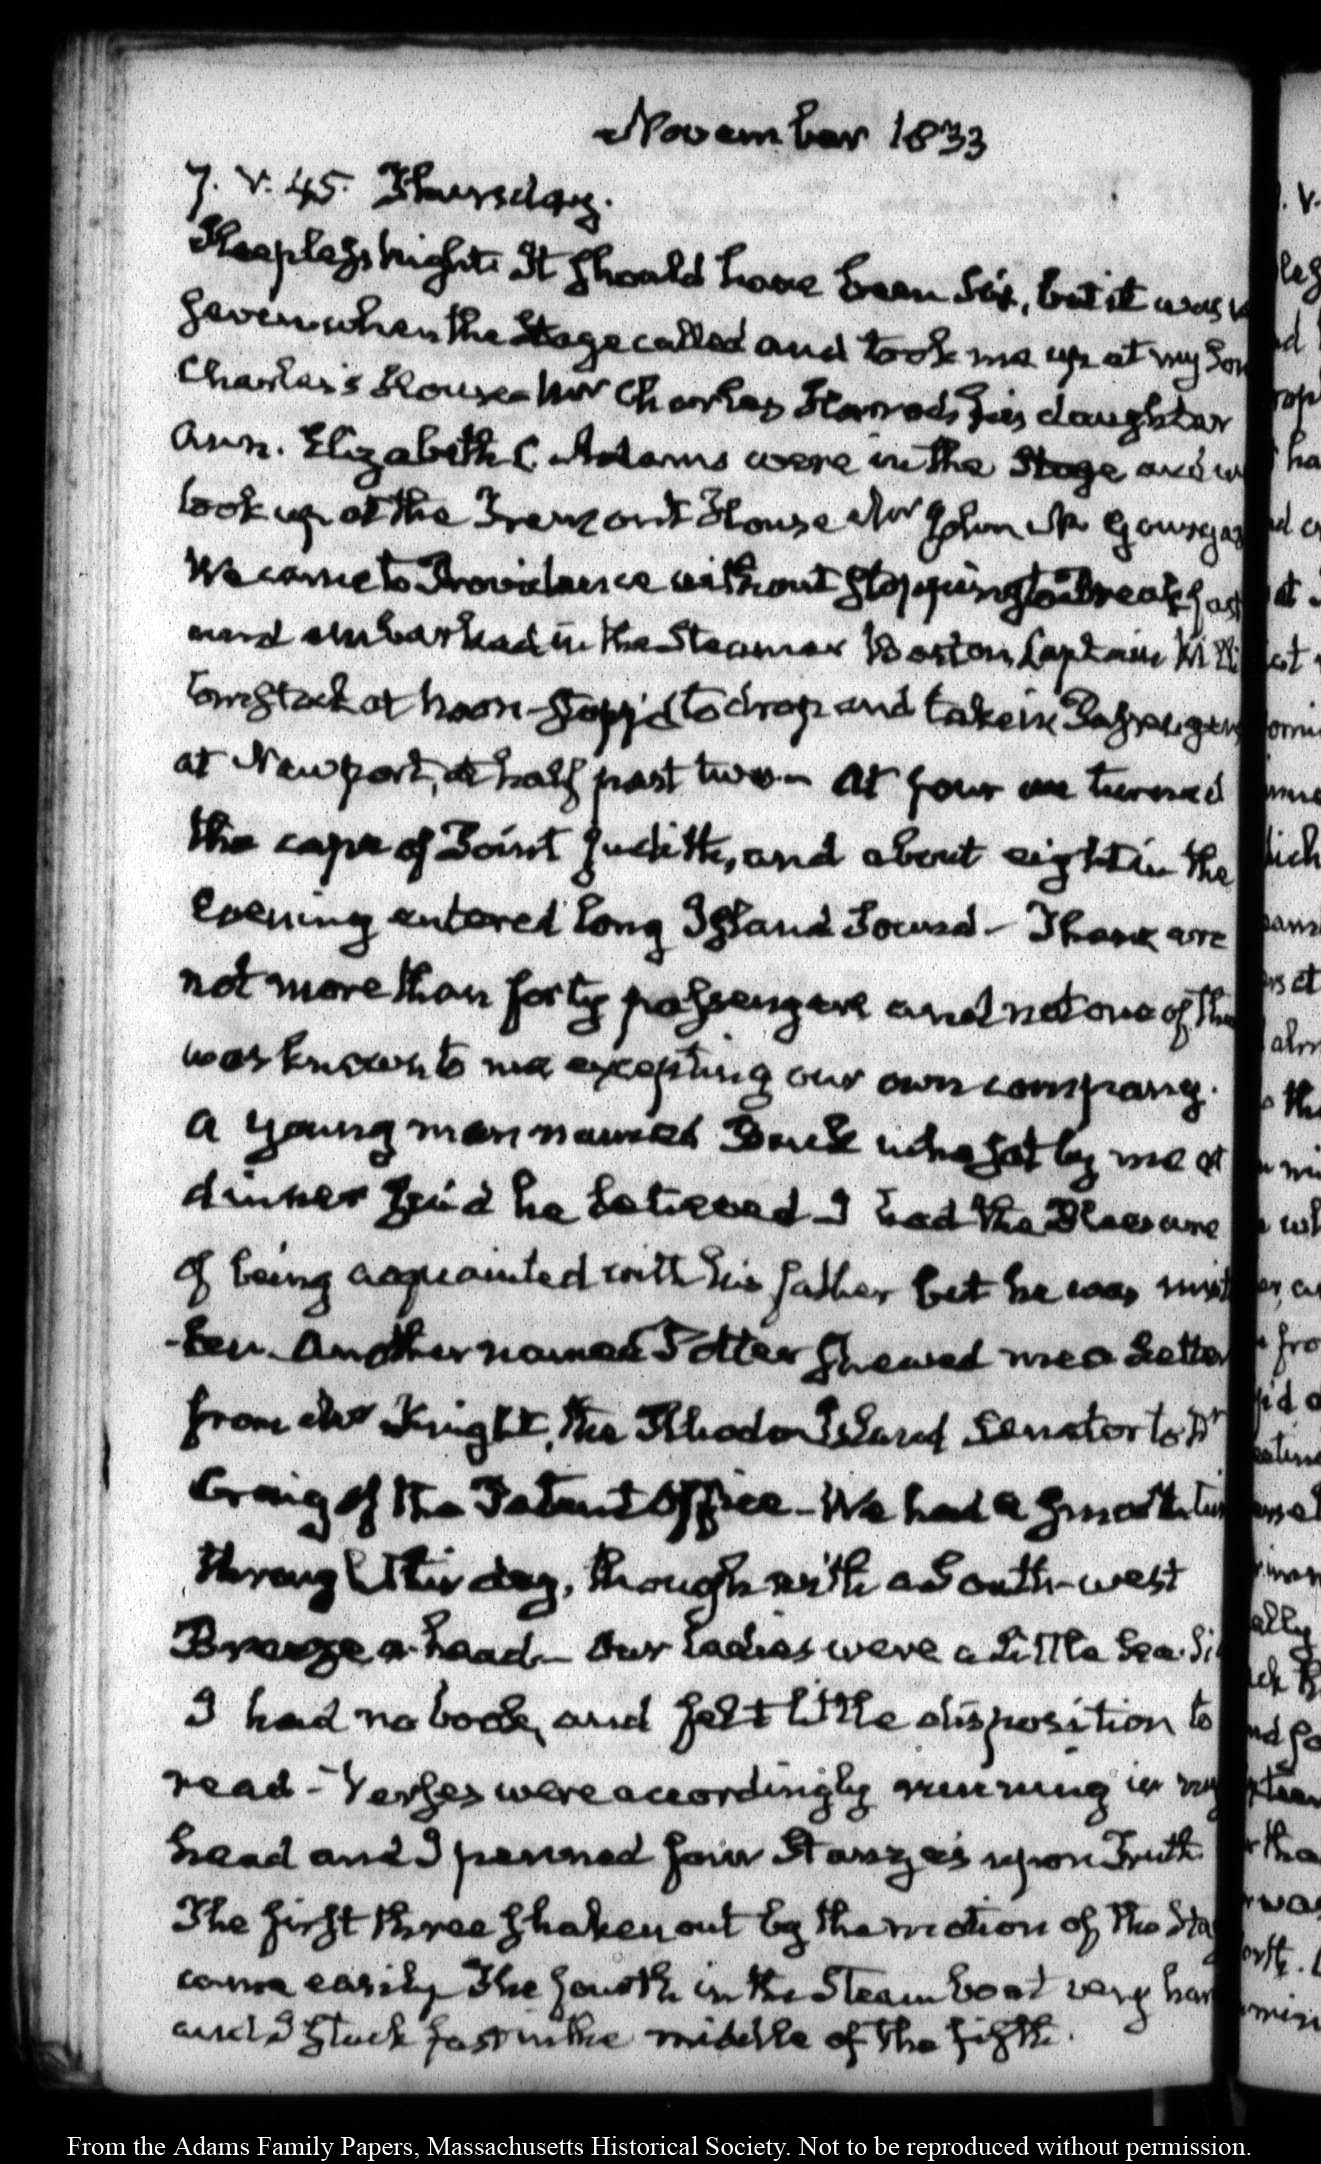 November 1833
7. V. 45. Thursday.
Sleepless night. It should have been Six, but it was
Seven when the Stage called and took me up at my Son
Charles's House. Mr Charles Harrod, his daughter
Ann. Elizabeth C. Adams were in the Stage and we
took up at the Tremont House Mr John
We came to Providence without stopping to Breakfast
and embarked in the Steamer Boston, Captain
Comstock at noon. Stopp'd to drop and take in Passengers
at Newport, at half past two. At four we turned
the cape of Point Judith, and about eight in the
Evening entered Long Island Sound. There are
not more than forty passengers and not one of them
was known to me excepting our own company.
A young man named Buck who sat by me at
dinner said he believed I had the Pleasure
of being acquainted with his father but he was mista
-ken. Another named Potter shewed me a Letter
from Mr Knight, the Rhode Island Senator to Dr
Craig of the Patent Office. We had a smooth time
through this day, though with a South-west
Breeze a-head. Our Ladies were a little Sea-Sick
I had no book, and felt little disposition to
read - Verses were accordingly running in my
head and I penned four Stanzas upon Truth
The first three shaken out by the motion of the Stage
came easily. The fourth in the Steam boat very hard
and I stuck fast in the middle of the fifth.
From the Adams Family Papers, Massachusetts Historical Society. Not to be reproduced without permission.